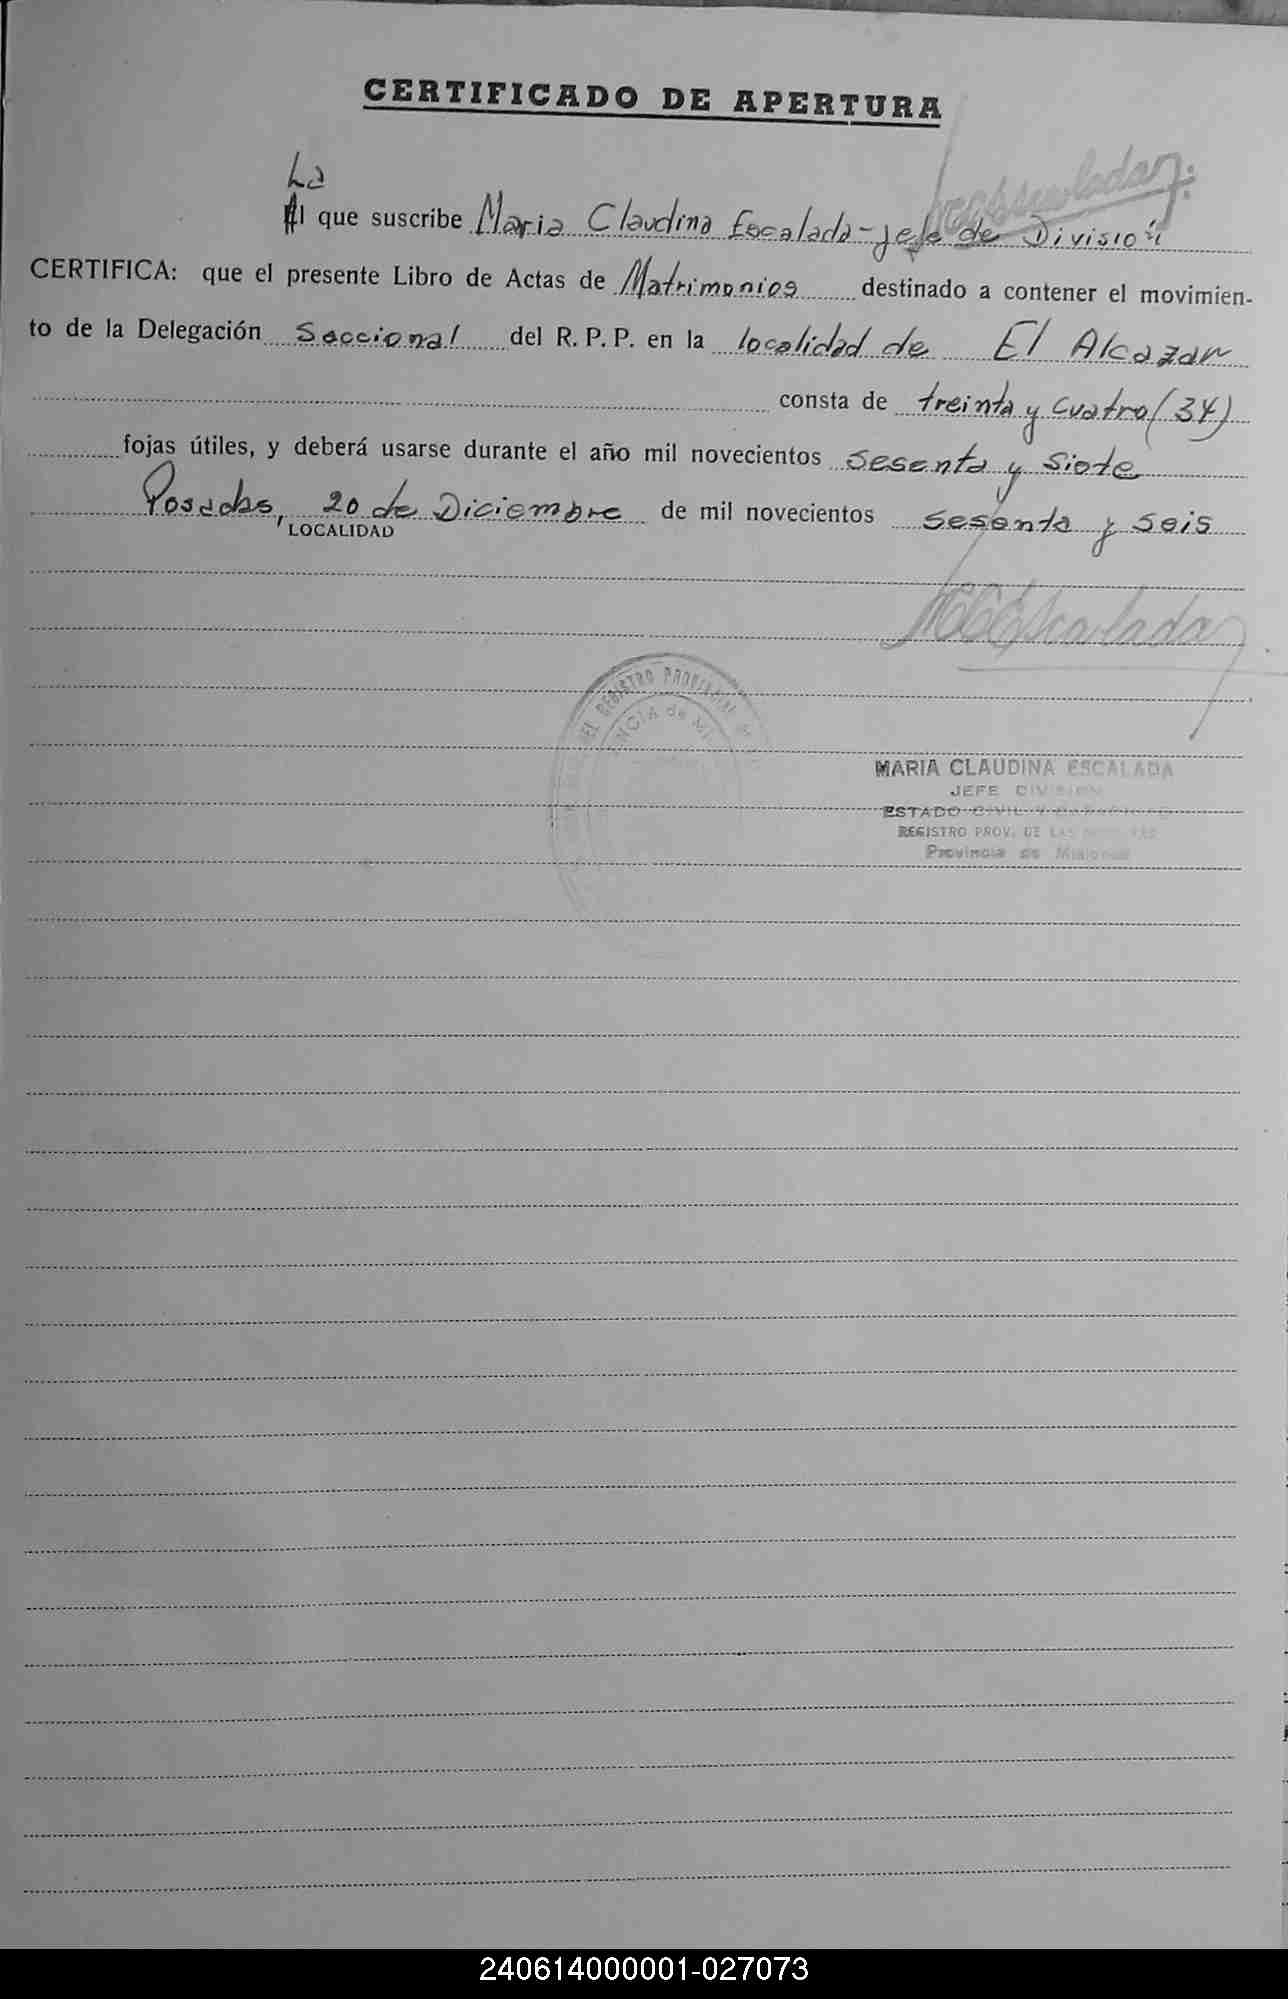 CERTIFICADO DE APERTURA
La
El que suscribe Maria Claudina Escalada - jefe de División
CERTIFICA: que el presente Libro de Actas de Matrimonios destinado a contener el movimien-
to de la Delegación Seccional del R. P. P. en la localidad de El Alcazar
consta de treinta y cuatro (34)
fojas útiles, y deberá usarse durante el año mil novecientos sesenta y siete
Posadas, 20 de Diciembre de mil novecientos sesenta y seis
LOCALIDAD
MCEscalada
REGISTRO PROVINCIAL
MARIA CLAUDINA ESCALADA
JEFE DIVISION
ESTADO CIVIL Y
REGISTRO PROV. DE LAS
Provincia de Misiones
240614000001-027073